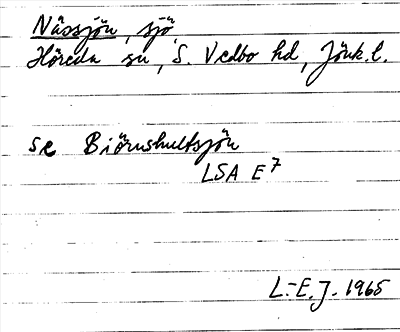 Nässjön, sjö
Höreda sn, S. Vedbo hd, Jönk. l.
se Biörnshultsjön
LSA E7
L.-E. J. 1965